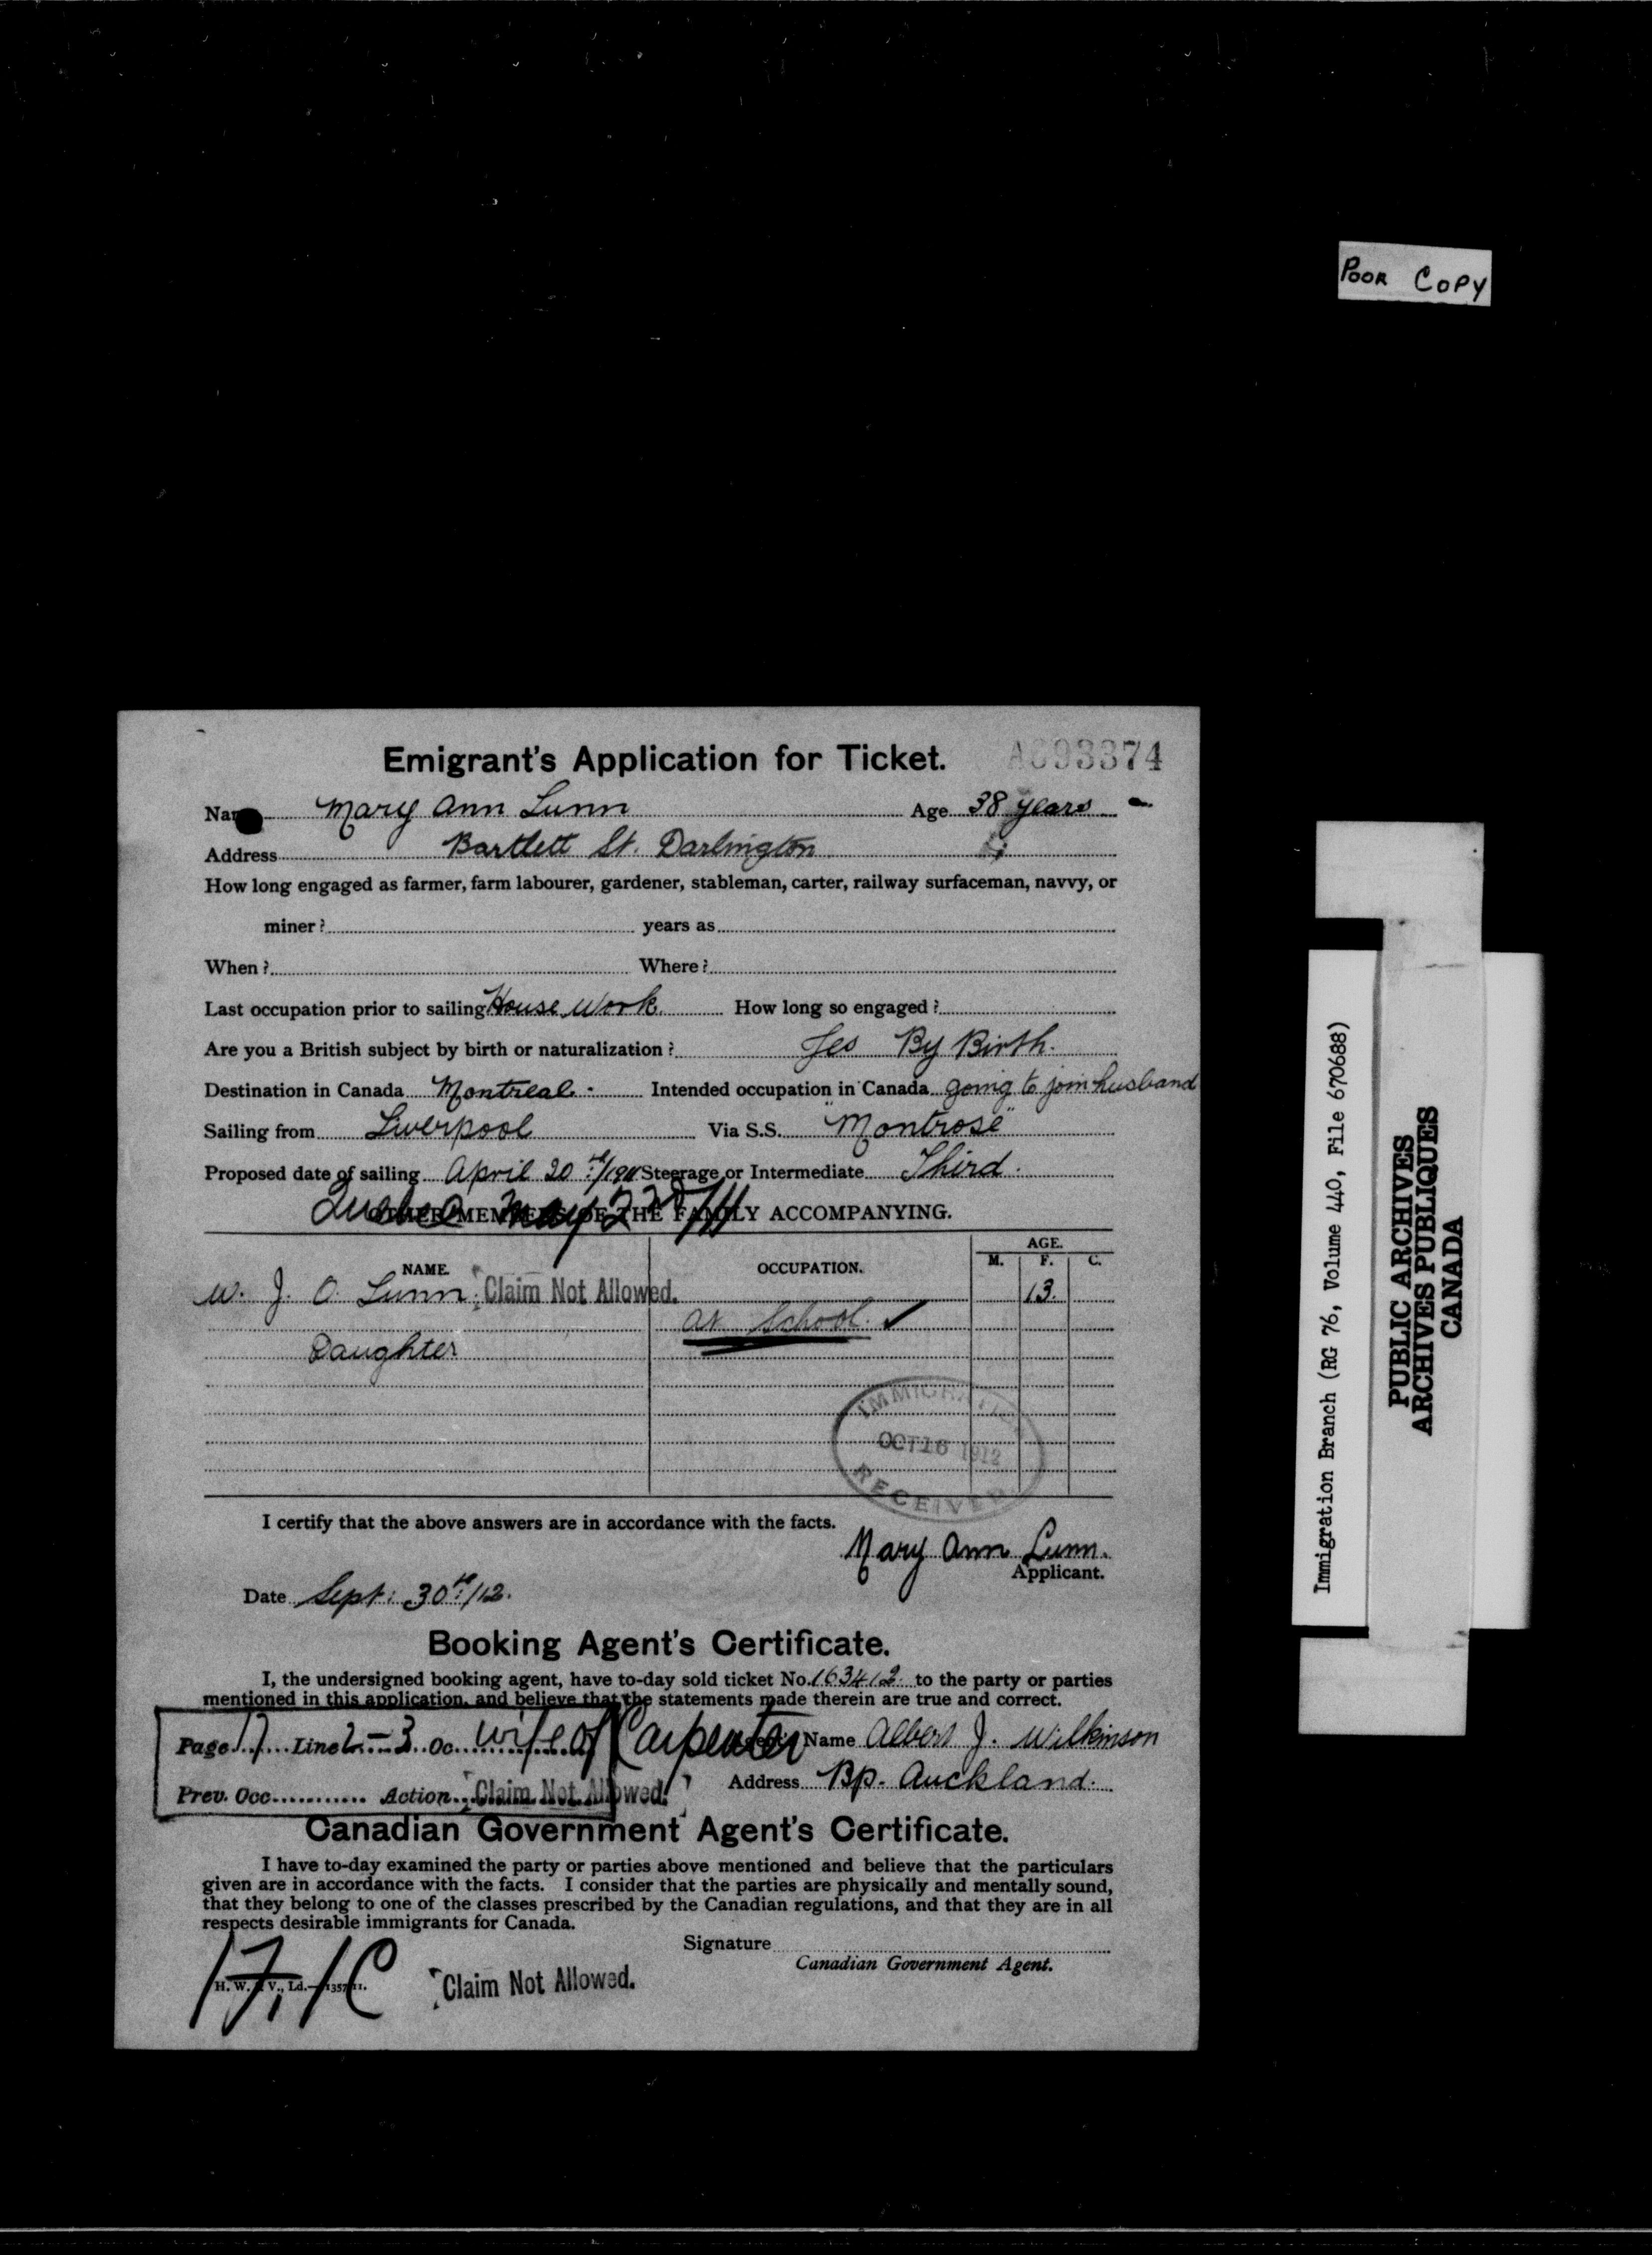 POOR COPY
Emigrant's Application for Ticket. A093374
Name Mary Ann Lunn Age 38 years
Address Bartlett St. Darlington
How long engaged as farmer, farm labourer, gardener, stableman, carter, railway surfaceman, navvy, or
miner? years as
When? Where?
Last occupation prior to sailing House Work. How long so engaged?
Are you a British subject by birth or naturalization? Yes By Birth.
Destination in Canada Montreal - Intended occupation in Canada going to join husband
Sailing from Liverpool Via S.S. "Montrose"
Proposed date of sailing April 20th/1911 Steerage or Intermediate Third.
Quebec May 2nd/11
OTHER MEMBERS OF THE FAMILY ACCOMPANYING.
NAME. OCCUPATION. AGE.
M. F. C.
W. J. O. Lunn Claim Not Allowed. 13.
at School. ✓
Daughter
IMMIGRATION
OCT 16 1912
RECEIVED
I certify that the above answers are in accordance with the facts.
Mary Ann Lunn.
Applicant.
Date Sept: 30th/12.
Booking Agent's Certificate.
I, the undersigned booking agent, have to-day sold ticket No. 163412 to the party or parties
mentioned in this application, and believe that the statements made therein are true and correct.
Page 17 Line 2-3 Oc. wife of Carpenter Name Albert J. Wilkinson
Prev. Occ. Action Claim Not Allowed. Address Bp. Auckland.
Canadian Government Agent's Certificate.
I have to-day examined the party or parties above mentioned and believe that the particulars
given are in accordance with the facts. I consider that the parties are physically and mentally sound,
that they belong to one of the classes prescribed by the Canadian regulations, and that they are in all
respects desirable immigrants for Canada.
Signature
Canadian Government Agent.
H. W. V., Ld.
Claim Not Allowed.
Immigration Branch (RG 76, Volume 440, File 670688)
PUBLIC ARCHIVES
ARCHIVES PUBLIQUES
CANADA